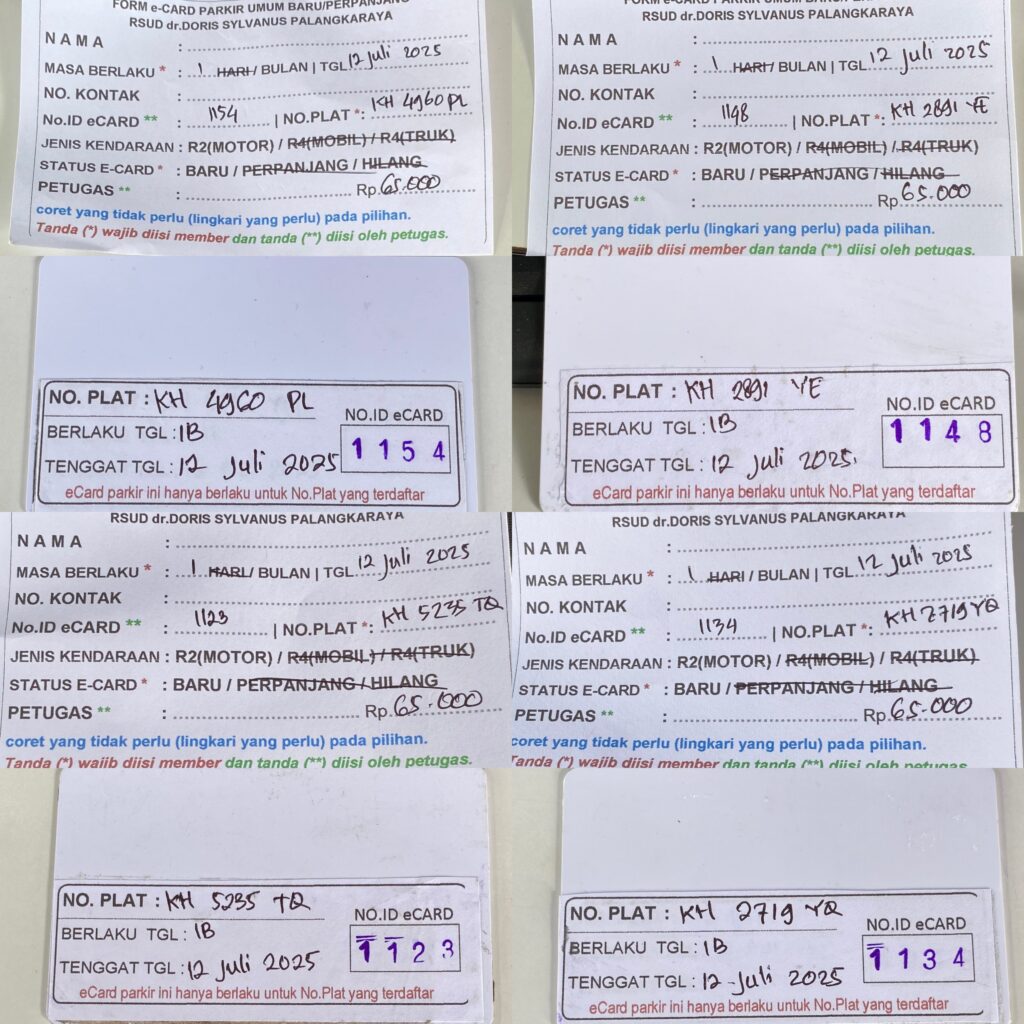 FORM e-CARD PARKIR UMUM BARU/PERPANJANG
RSUD dr.DORIS SYLVANUS PALANGKARAYA
N A M A :
MASA BERLAKU * : 1 HARI / BULAN | TGL 12 juli 2025
NO. KONTAK :
No.ID eCARD ** : 1154 | NO.PLAT *: KH 4960 PL
JENIS KENDARAAN : R2(MOTOR) / R4(MOBIL) / R4(TRUK)
STATUS E-CARD * : BARU / PERPANJANG / HILANG
PETUGAS ** : Rp. 65.000
coret yang tidak perlu (lingkari yang perlu) pada pilihan.
Tanda (*) wajib diisi member dan tanda (**) diisi oleh petugas.
RSUD dr.DORIS SYLVANUS PALANGKARAYA
N A M A :
MASA BERLAKU * : 1 HARI / BULAN | TGL 12 juli 2025
NO. KONTAK :
No.ID eCARD ** : 1148 | NO.PLAT *: KH 2891 YE
JENIS KENDARAAN : R2(MOTOR) / R4(MOBIL) / R4(TRUK)
STATUS E-CARD * : BARU / PERPANJANG / HILANG
PETUGAS ** : Rp 65.000
coret yang tidak perlu (lingkari yang perlu) pada pilihan.
Tanda (*) wajib diisi member dan tanda (**) diisi oleh petugas.
NO. PLAT : KH 4960 PL
NO.ID eCARD
BERLAKU TGL : 1B
1 1 5 4
TENGGAT TGL : 12 juli 2025
eCard parkir ini hanya berlaku untuk No.Plat yang terdaftar
NO. PLAT : KH 2891 YE
NO.ID eCARD
BERLAKU TGL : 1B
1 1 4 8
TENGGAT TGL : 12 juli 2025.
eCard parkir ini hanya berlaku untuk No.Plat yang terdaftar
RSUD dr.DORIS SYLVANUS PALANGKARAYA
N A M A :
MASA BERLAKU * : 1 HARI / BULAN | TGL 12 juli 2025
NO. KONTAK :
No.ID eCARD ** : 1123 | NO.PLAT *: KH 5235 TQ
JENIS KENDARAAN : R2(MOTOR) / R4(MOBIL) / R4(TRUK)
STATUS E-CARD * : BARU / PERPANJANG / HILANG
PETUGAS ** : Rp. 65.000
coret yang tidak perlu (lingkari yang perlu) pada pilihan.
Tanda (*) wajib diisi member dan tanda (**) diisi oleh petugas.
RSUD dr.DORIS SYLVANUS PALANGKARAYA
N A M A :
MASA BERLAKU * : 1 HARI / BULAN | TGL 12 juli 2025
NO. KONTAK :
No.ID eCARD ** : 1134 | NO.PLAT *: KH 2719 YQ
JENIS KENDARAAN : R2(MOTOR) / R4(MOBIL) / R4(TRUK)
STATUS E-CARD * : BARU / PERPANJANG / HILANG
PETUGAS ** : Rp. 65.000
coret yang tidak perlu (lingkari yang perlu) pada pilihan.
Tanda (*) wajib diisi member dan tanda (**) diisi oleh petugas.
NO. PLAT : KH 5235 TQ
NO.ID eCARD
BERLAKU TGL : 1B
1 1 2 3
TENGGAT TGL : 12 juli 2025
eCard parkir ini hanya berlaku untuk No.Plat yang terdaftar
NO. PLAT : KH 2719 YQ
NO.ID eCARD
BERLAKU TGL : 1B
1 1 3 4
TENGGAT TGL : 12 - juli 2025
eCard parkir ini hanya berlaku untuk No.Plat yang terdaftar